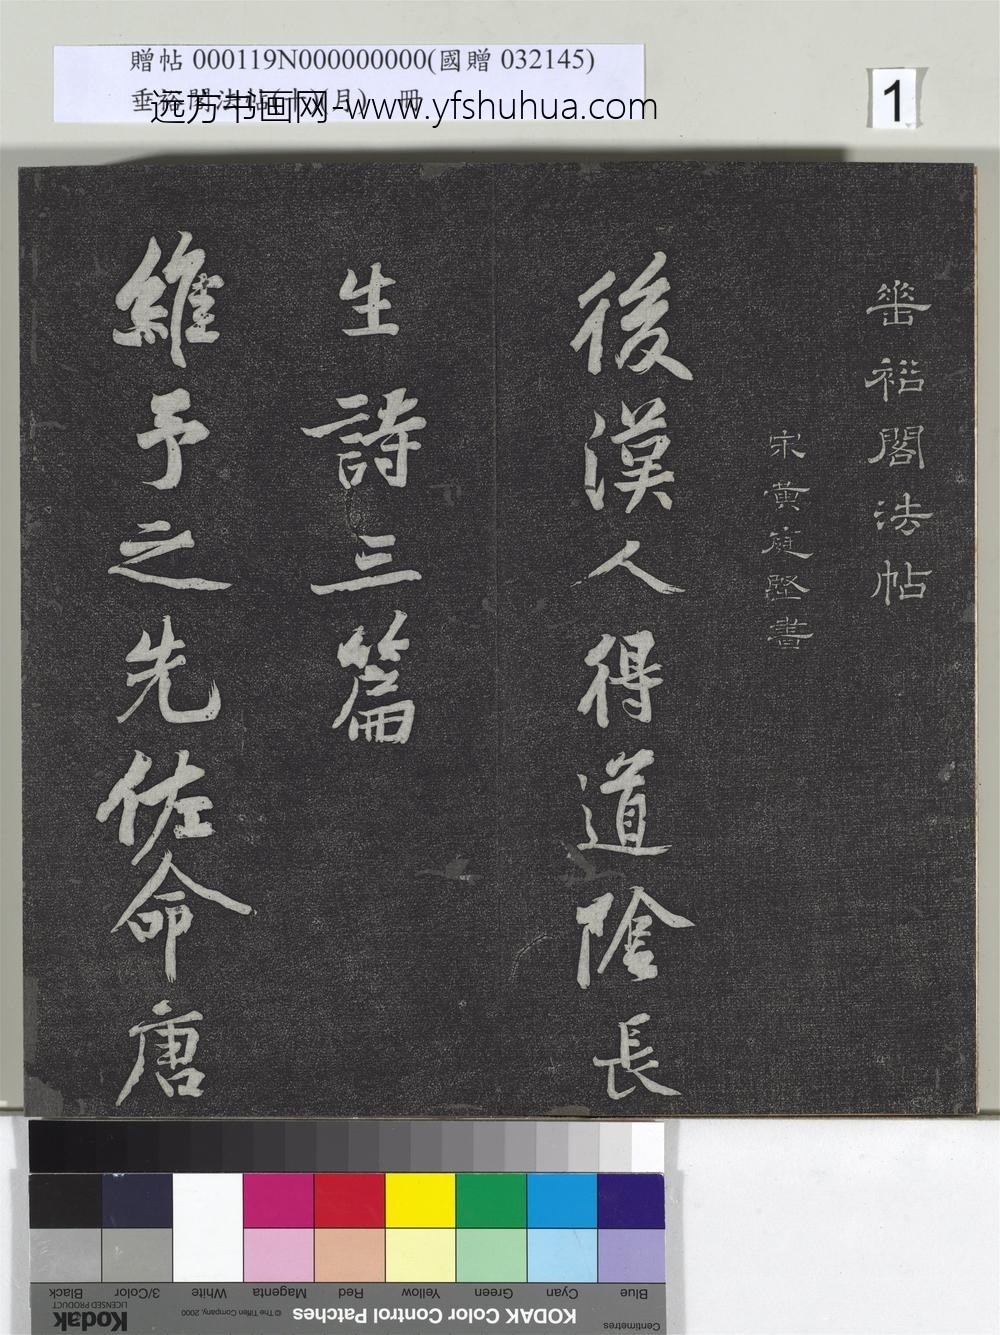 贈帖 000119N000000000(國贈 032145)
远方书画网-www.yfshuhua.com
1
垂裕閣法帖
宋黄庭堅書
後漢人得道陰長
生詩三篇
維予之先佐命唐
Blue Cyan Green Yellow Red Magenta White 3/Color Black
Centimetres
KODAK Color Control Patches
© The Tiffen Company, 2000
Kodak
LICENSED PRODUCT